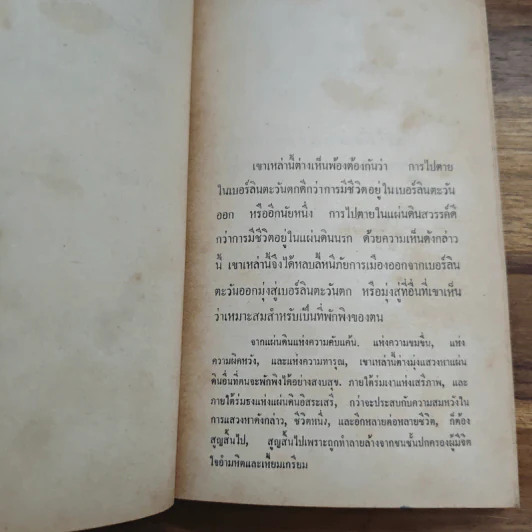 เขาเหล่านี้ต่างเห็นพ้องต้องกันว่า การไปตาย
ในเบอร์ลินตะวันตกดีกว่าการมีชีวิตอยู่ในเบอร์ลินตะวัน
ออก หรืออีกนัยหนึ่ง การไปตายในแผ่นดินสวรรค์ดี
กว่าการมีชีวิตอยู่ในแผ่นดินนรก ด้วยความเห็นดังกล่าว
นี้ เขาเหล่านี้จึงได้หลบลี้หนีภัยการเมืองออกจากเบอร์ลิน
ตะวันออกมุ่งสู่เบอร์ลินตะวันตก หรือมุ่งสู่ที่อื่นที่เขาเห็น
ว่าเหมาะสมสำหรับเป็นที่พักพิงของตน
จากแผ่นดินแห่งความคับแค้น. แห่งความขมขื่น, แห่ง
ความผิดหวัง, และแห่งความทารุณ, เขาเหล่านี้ต่างมุ่งแสวงหาแผ่น
ดินอื่นที่ตนจะพักพิงได้อย่างสงบสุข. ภายใต้ร่มเงาแห่งเสรีภาพ, และ
ภายใต้ร่มธงแห่งแผ่นดินอิสระเสรี, กว่าจะประสบกับความสมหวังใน
การแสวงหาดังกล่าว, ชีวิตหนึ่ง, และอีกหลายต่อหลายชีวิต, ก็ต้อง
สูญสิ้นไป, สูญสิ้นไปเพราะถูกทำลายล้างจากชนชั้นปกครองผู้มีจิต
ใจอำมหิตและเหี้ยมเกรียม